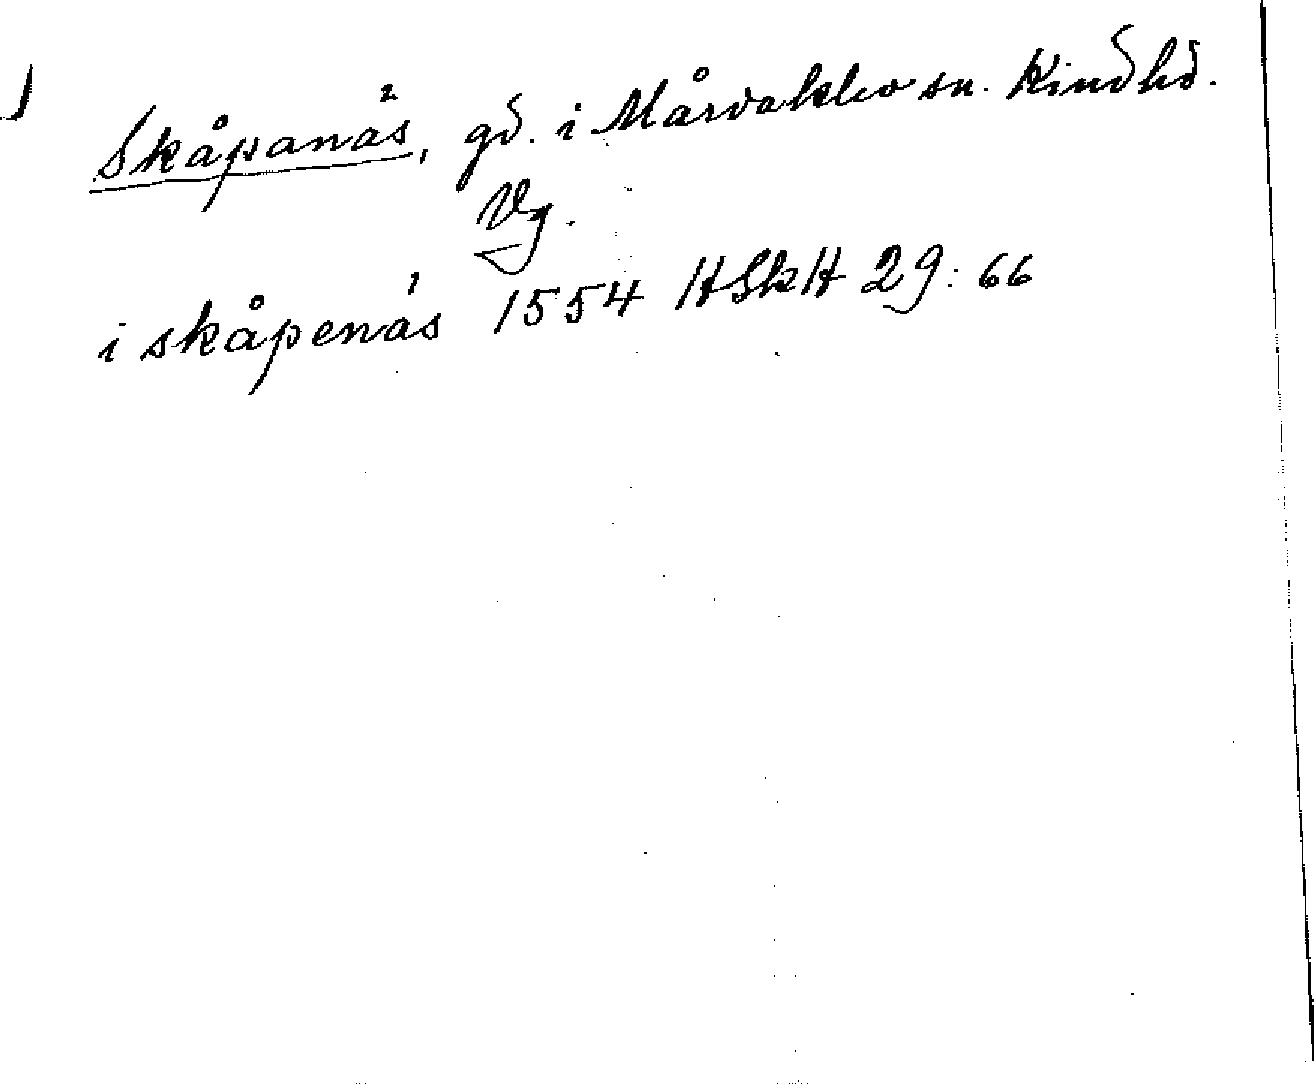 Skåpanäs, gd. i Mårdaklev sn. Kind hd.
Vg.
i skåpenäs 1554 HSkH 29:66